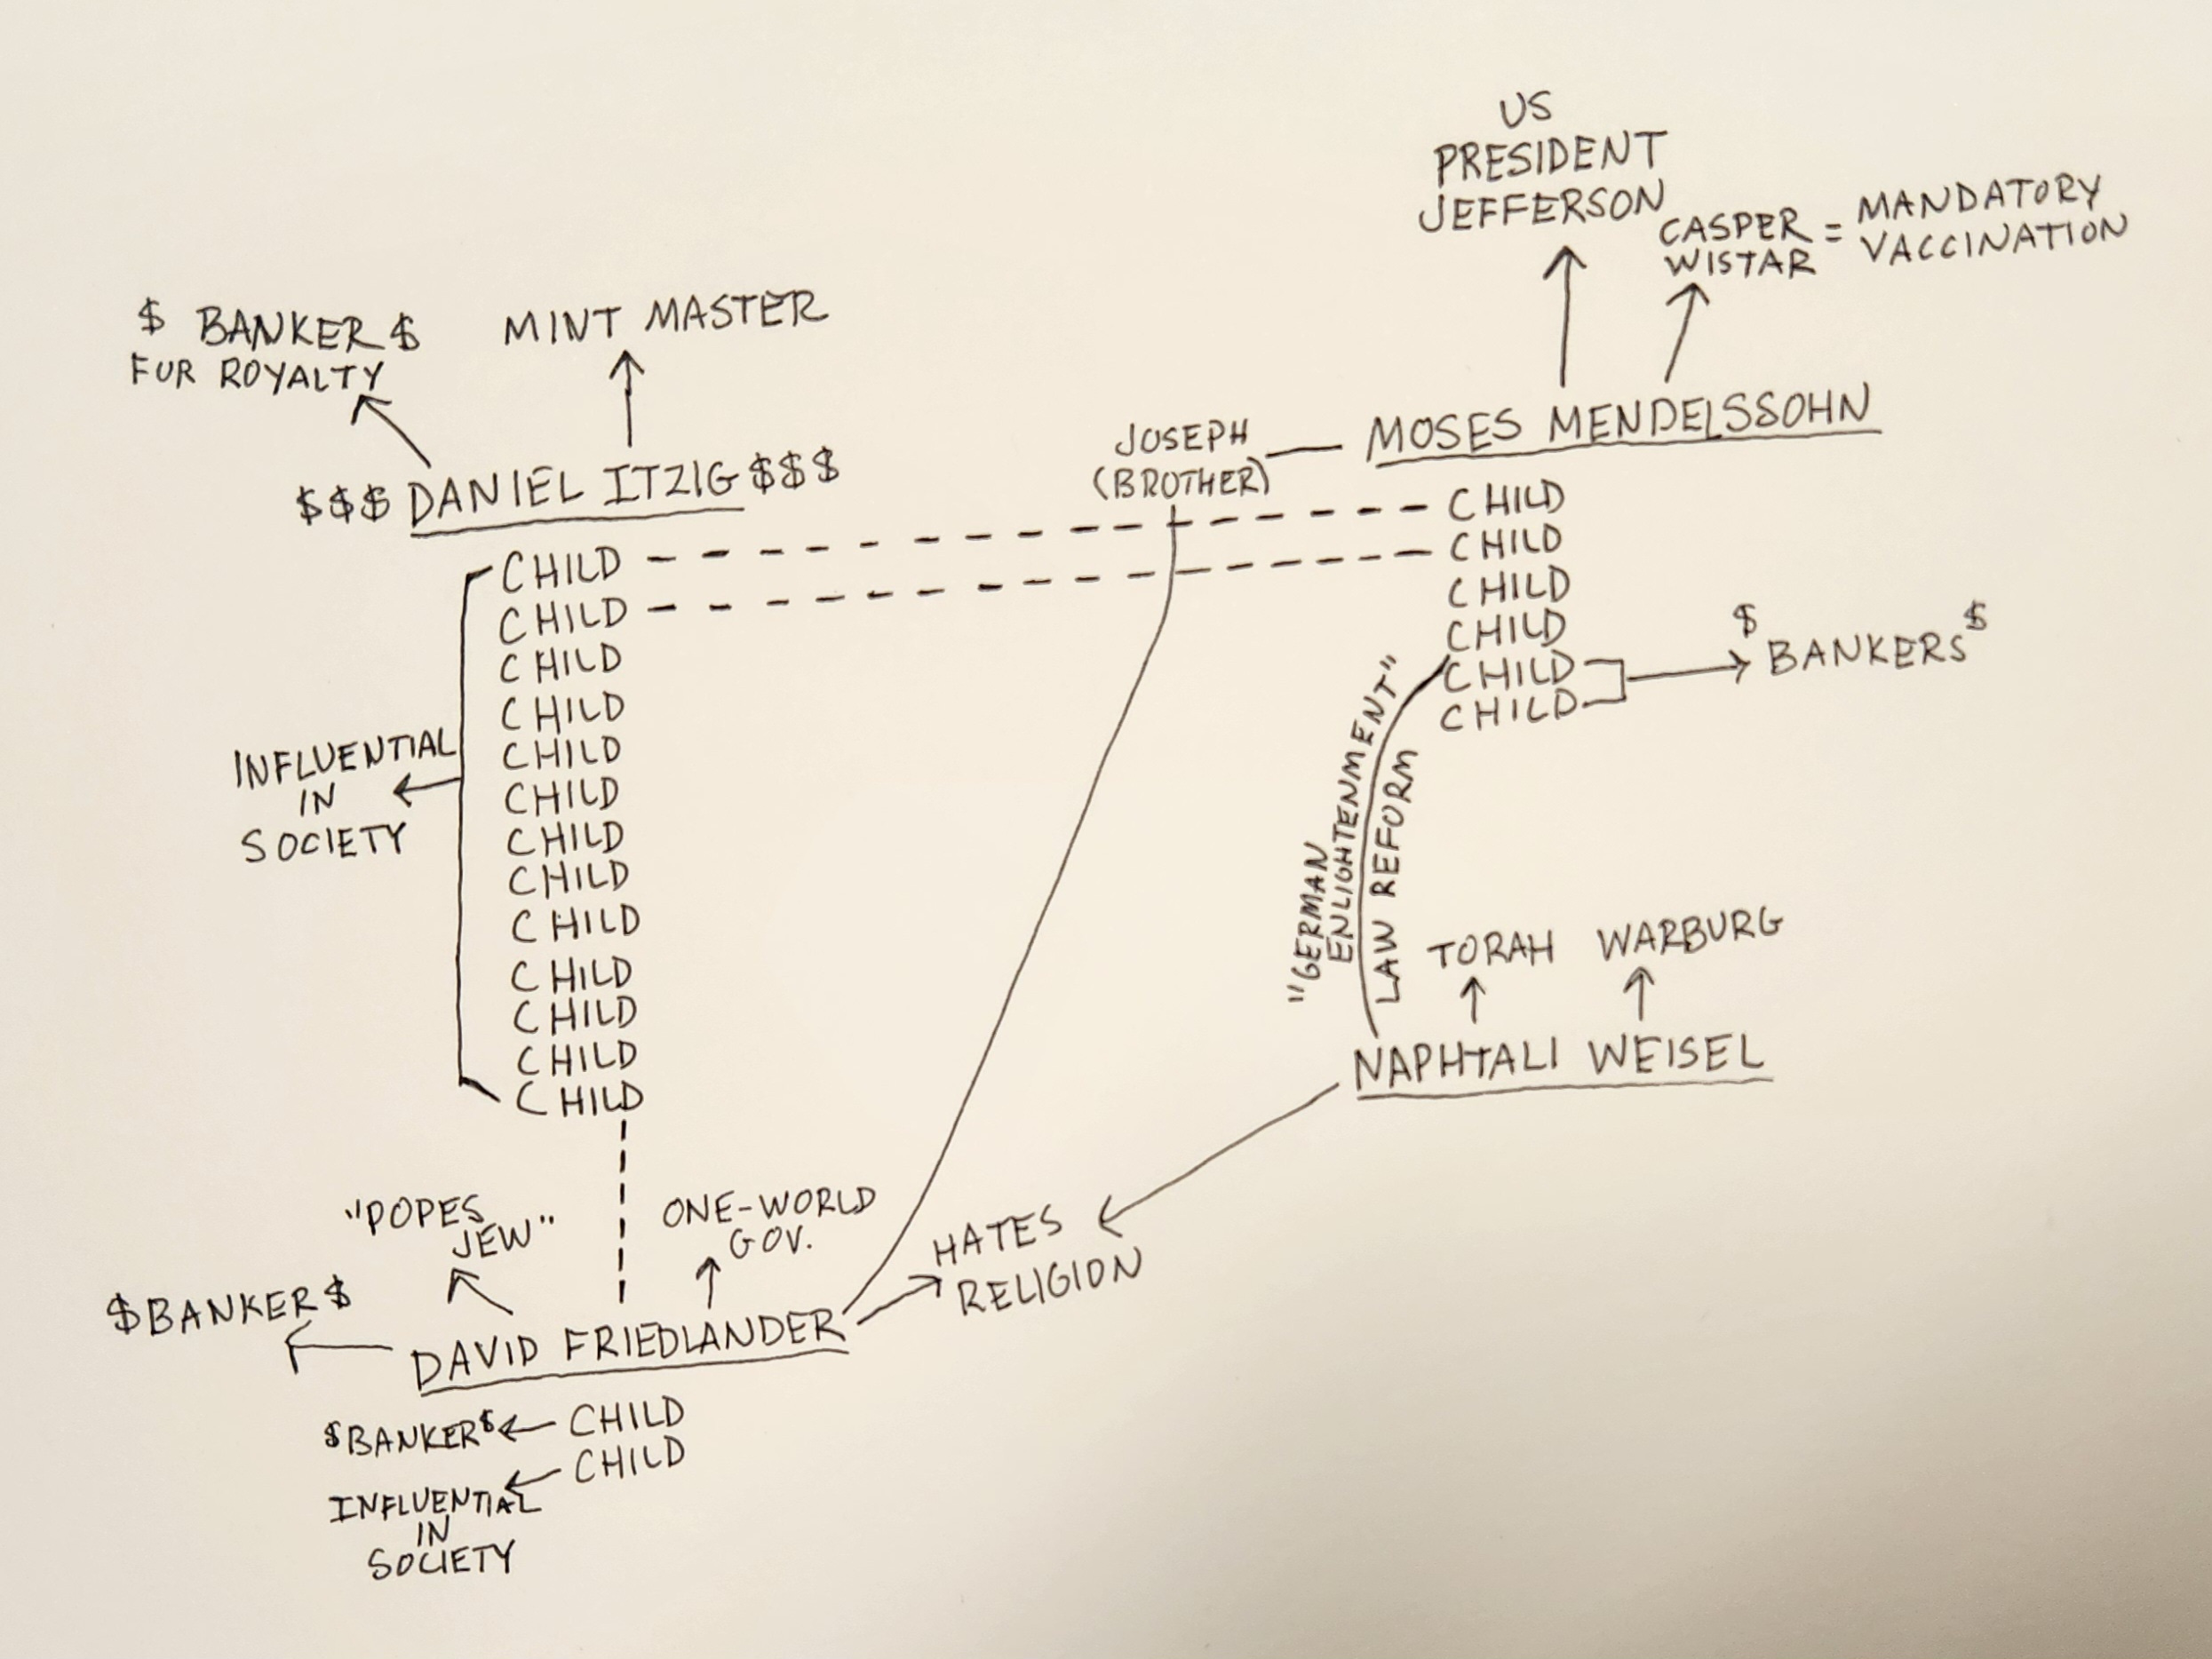 US
PRESIDENT
JEFFERSON
CASPER = MANDATORY
WISTAR VACCINATION
$ BANKER $
FUR ROYALTY
MINT MASTER
JOSEPH
(BROTHER)
MOSES MENDELSSOHN
$$$ DANIEL ITZIG $$$
CHILD
CHILD
CHILD
CHILD
CHILD
CHILD
$ BANKERS $
CHILD
CHILD
CHILD
CHILD
CHILD
CHILD
CHILD
CHILD
CHILD
CHILD
CHILD
CHILD
CHILD
INFLUENTIAL
IN
SOCIETY
"GERMAN
ENLIGHTENMENT"
LAW REFORM
TORAH WARBURG
NAPHTALI WEISEL
"POPES
JEW"
ONE-WORLD
GOV.
HATES
RELIGION
$BANKER$
DAVID FRIEDLANDER
$BANKER$ CHILD
CHILD
INFLUENTIAL
IN
SOCIETY